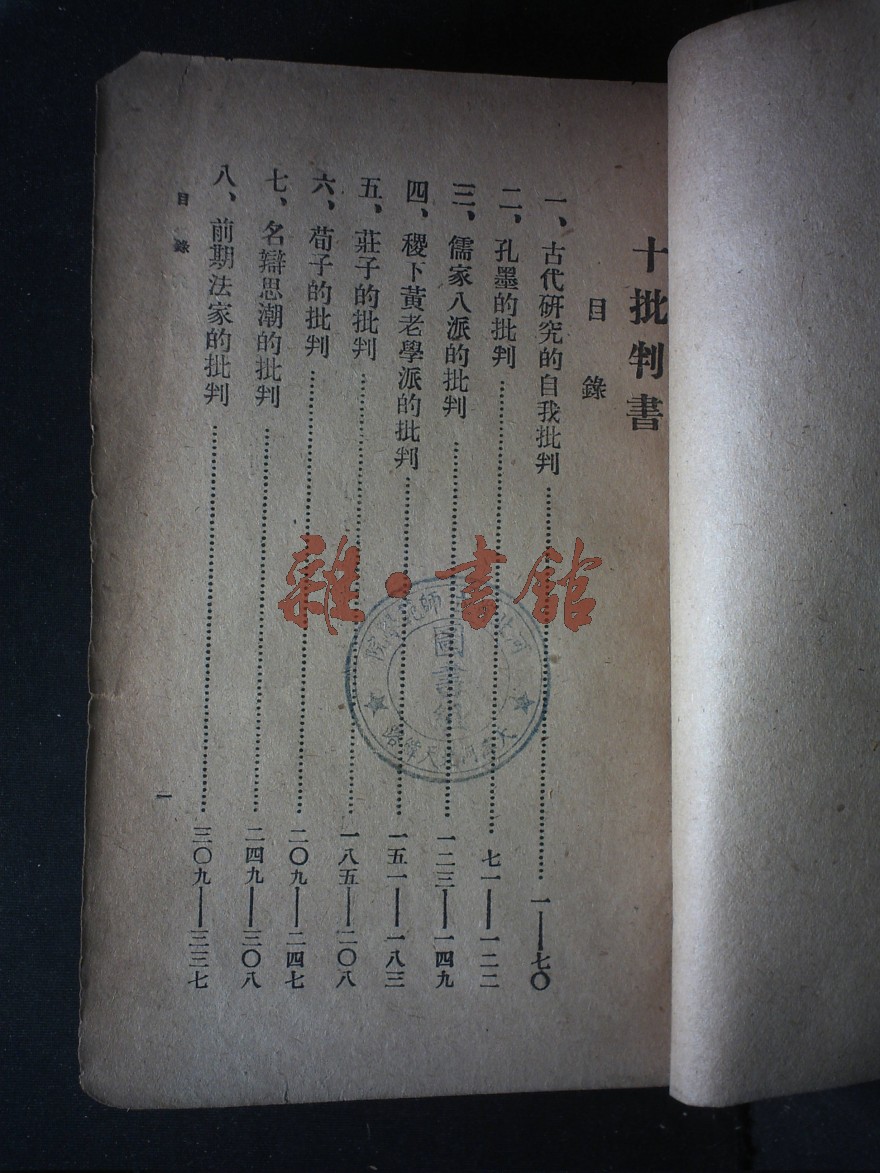 十批判書
目錄
一、古代研究的自我批判……一——七〇
二、孔墨的批判……七一——一二二
三、儒家八派的批判……一二三——一四九
四、稷下黃老學派的批判……一五一——一八三
五、莊子的批判……一八五——二〇八
六、荀子的批判……二〇九——二四七
七、名辯思潮的批判……二四九——三〇八
八、前期法家的批判……三〇九——三三七
目錄
一
雜·書館
師範學院
圖書